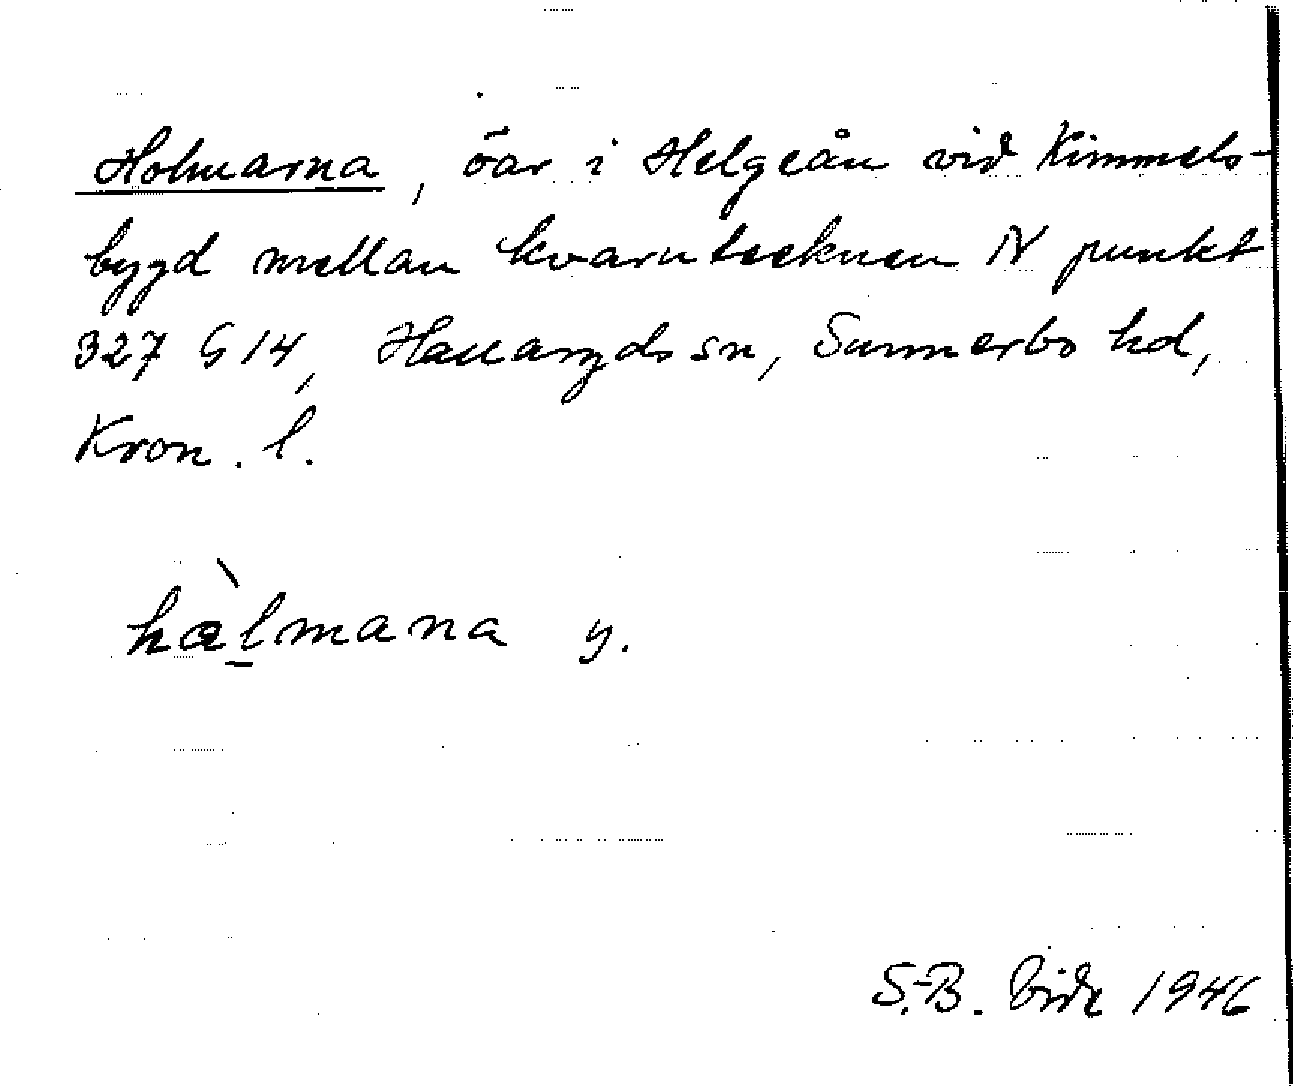 Holmarna, öar i Helgeån vid Kimmels-
bygd mellan kvarntecknen N punkt
327 G 14, Hallaryds sn, Sunnerbo hd,
Kron. l.
hàlmana y.
S.-B. Vide 1946